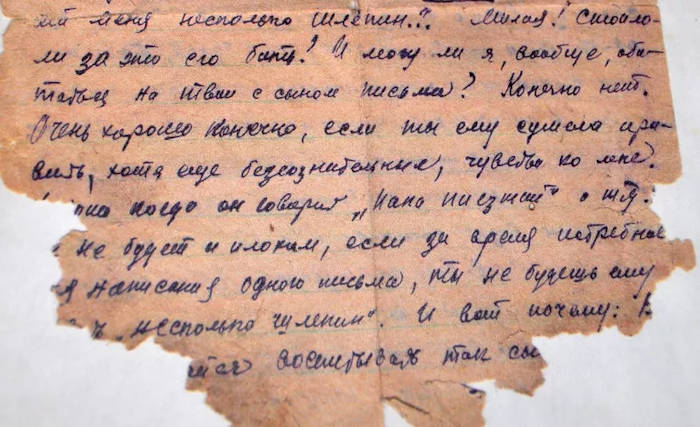 меня несколько шлепин..." Милая! Стоило-
ли за это его бить? И могу ли я, вообще, оби-
таться на твои с сыном письма? Конечно нет.
Очень хорошо конечно, если ты ему сумела при-
вить, хотя еще безсознательные, чувства ко мне.
когда он говорит „Папа писзжай" и т.д.
не будет и плохим, если за время потребное
написания одного письма, ты не будешь ему
„несколько шлепин". И вот почему:
воспитывать так сы